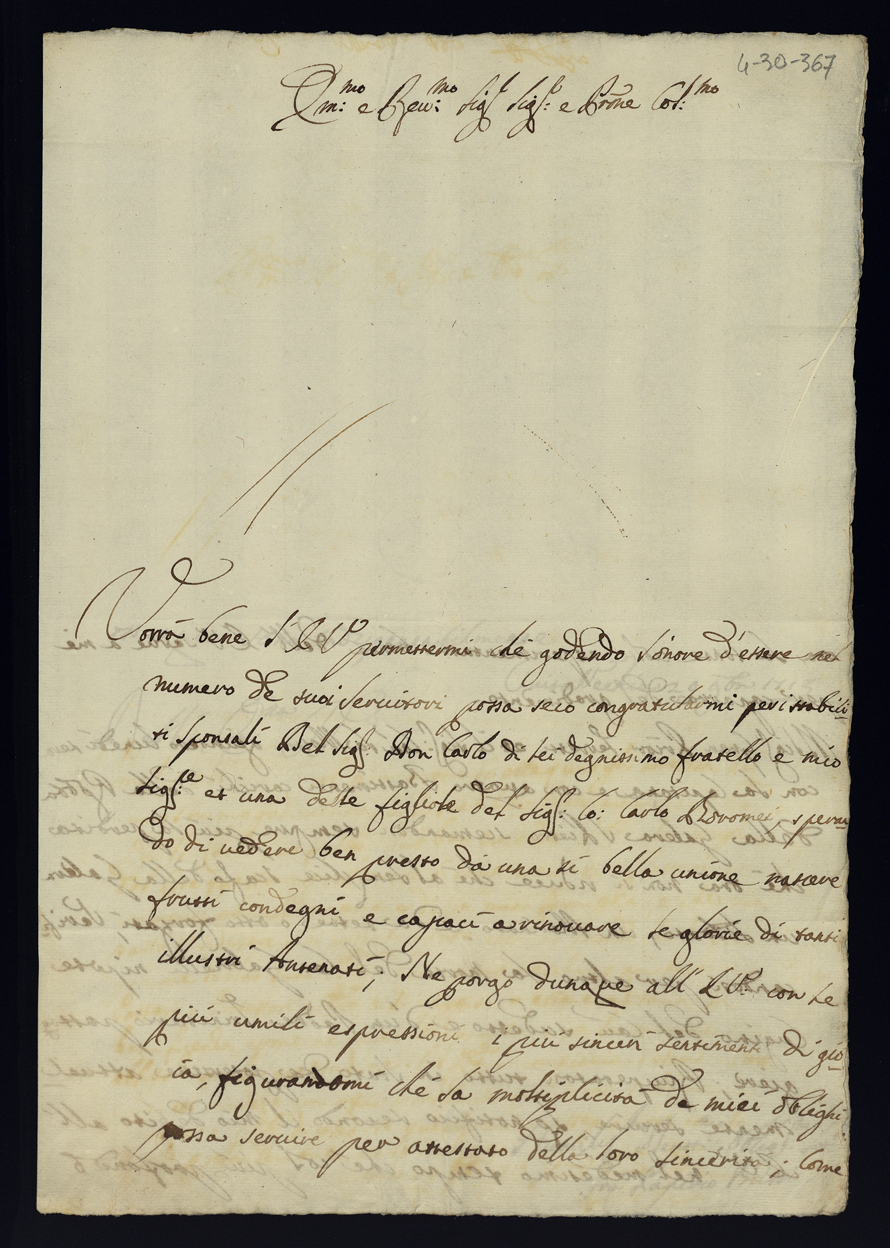 4-30-367
Em:mo e Rev:mo Sig.r Sig.re: e Prone Col:mo
Vorrà bene l'E V.ra permettermi che godendo l'onore d'essere nel
numero de suoi servitori possa seco congratularmi per i stabili-
ti sponsali del Sig.r Don Carlo di lei degnissimo fratello e mio
Sig.re et una delle figliole del Sig.r Co: Carlo Boromei, speran
do di vedere ben presto da una si bella unione nascere
frutti condegni e capaci a rinovare le glorie di tanti
illustri Antenati; Ne porgo dunque all'E V.ra con le
più umili espressioni i più sinceri sentimenti di gio-
ia, figurandomi che la moltiplicità de miei oblighi
possa servire per attestato della loro sincerità; come